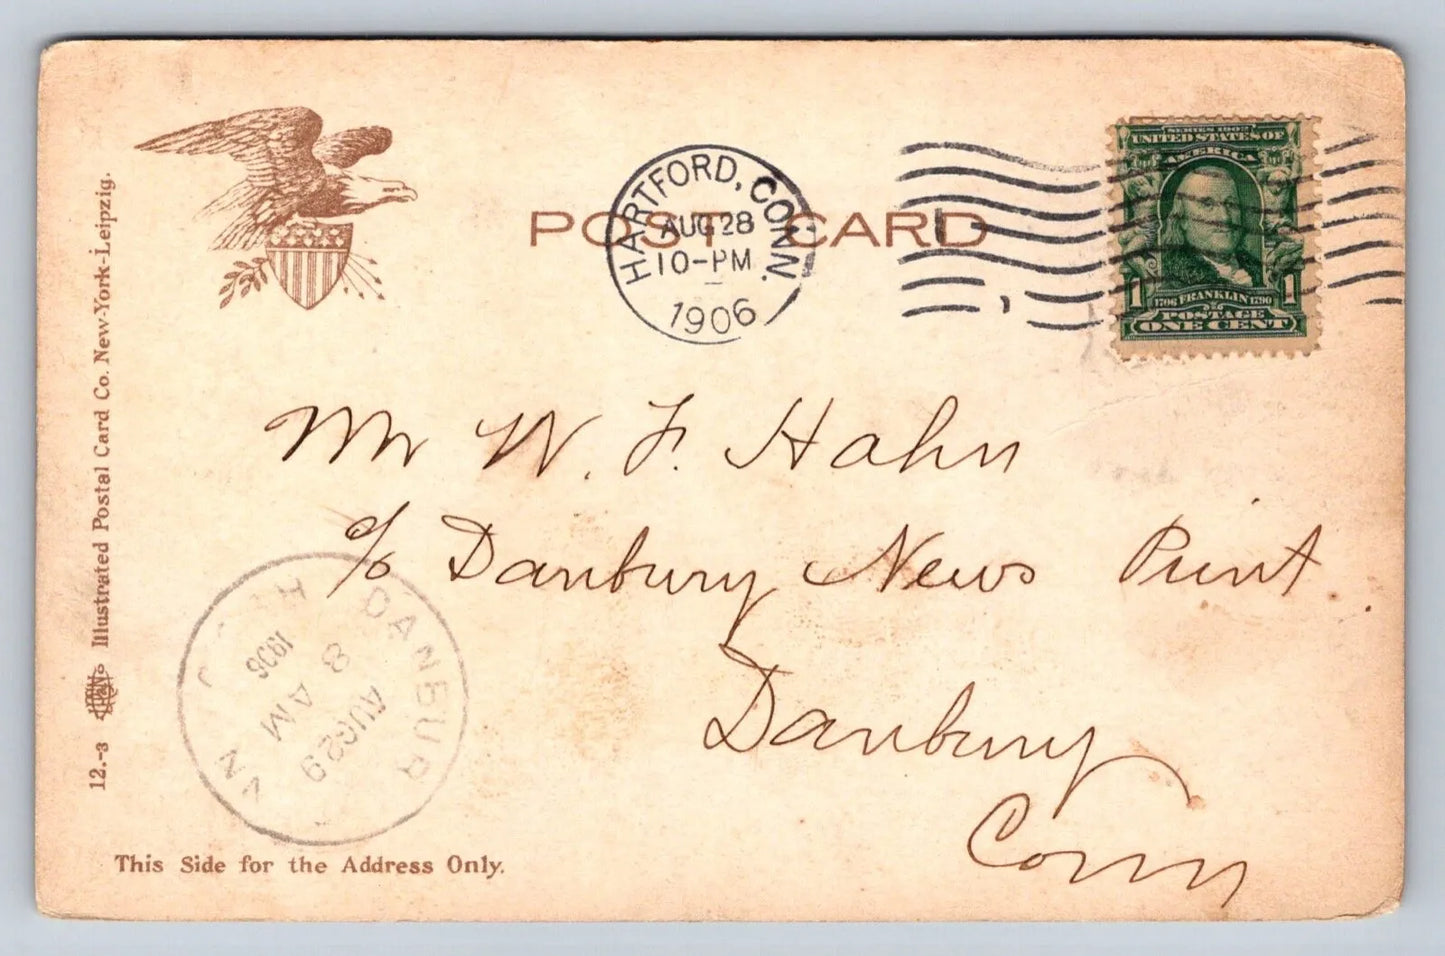 POST CARD
HARTFORD, CONN.
AUG 28
10-PM
1906
SERIES 1902
UNITED STATES OF
AMERICA
1 1
1706 FRANKLIN 1790
POSTAGE
ONE CENT
Mr W. F. Hahn
c/o Danbury News Print.
Danbury
Conn
DANBURY
8 AM
AUG 29
1906
12.-3 Illustrated Postal Card Co. New-York-Leipzig.
This Side for the Address Only.